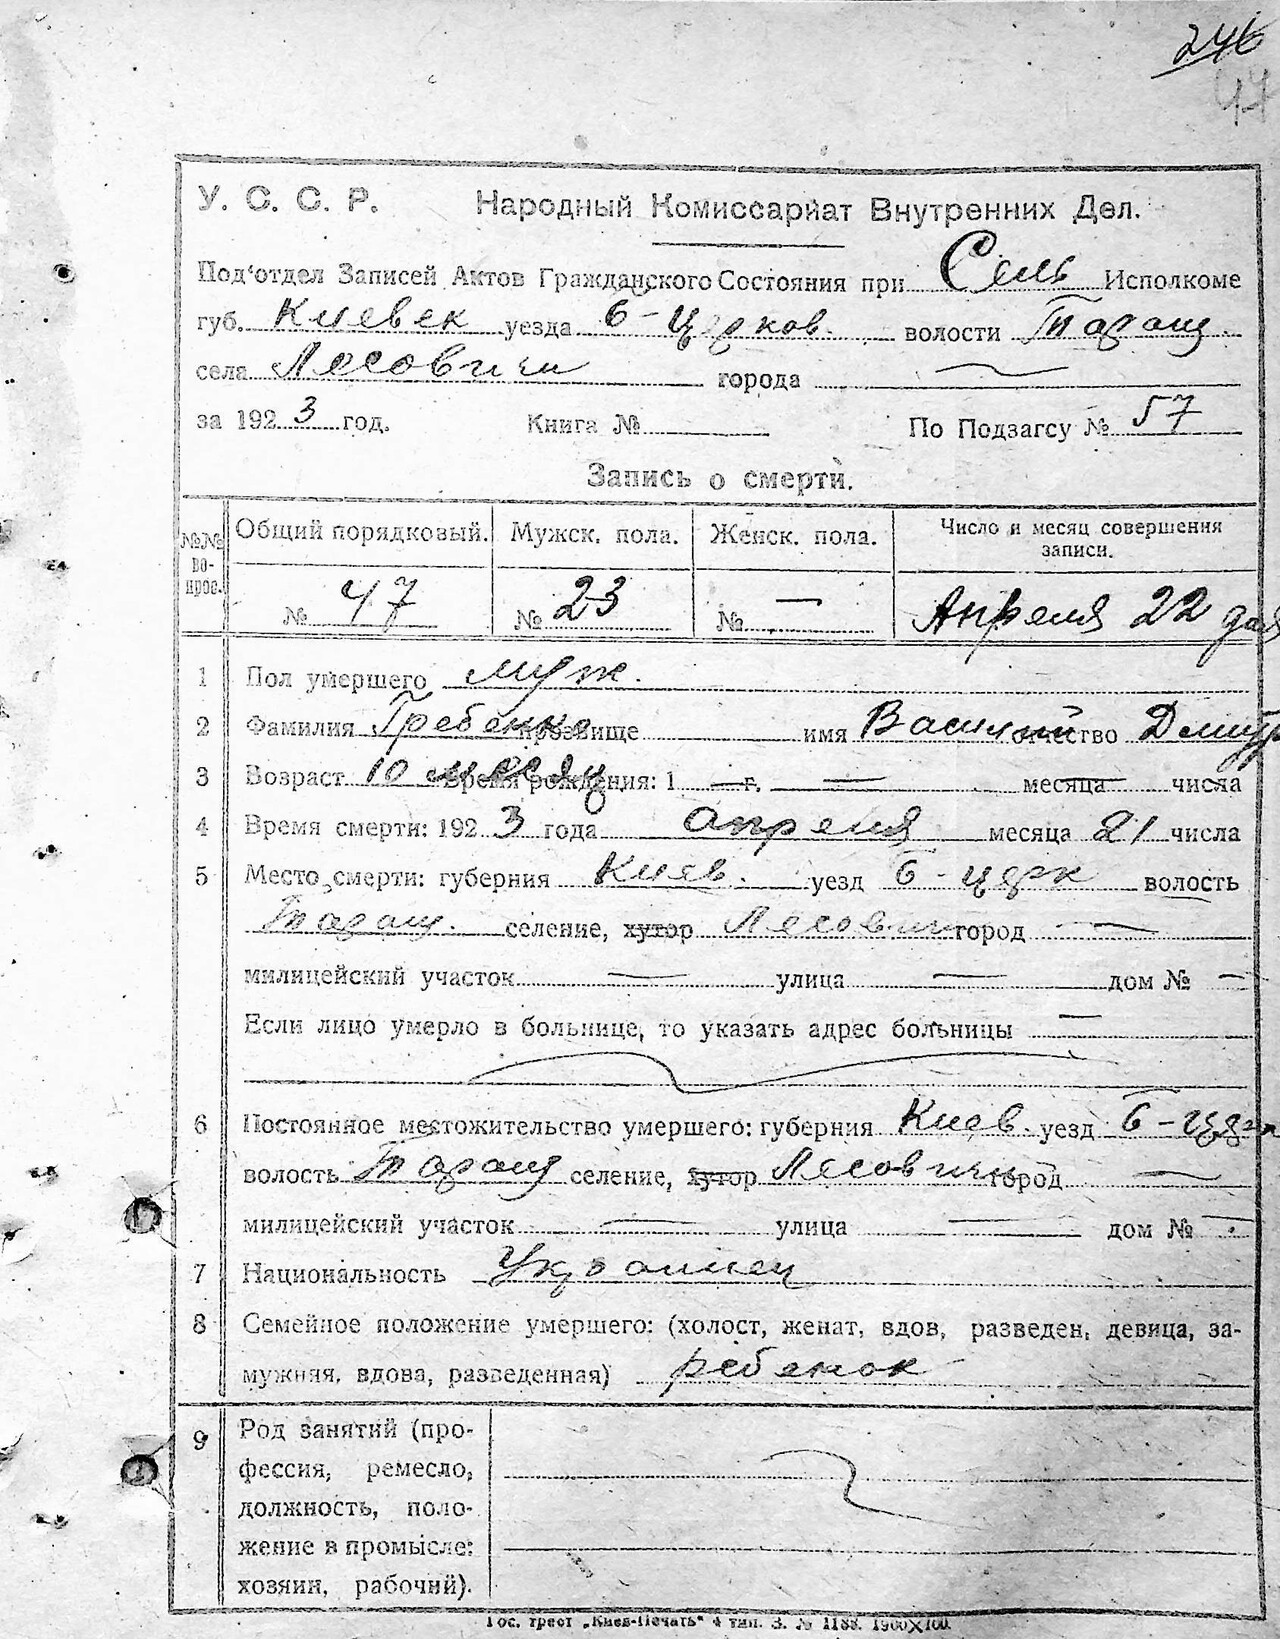 246
47
У. С. С. Р. Народный Комиссариат Внутренних Дел.
Под'отдел Записей Актов Гражданского Состояния при Сель Исполкоме
губ. Киевск уезда б-Церков. волости Таращ.
села Лесовичи города —
за 1923 год. Книга № По Подзагсу № 57
Запись о смерти.
№№ вопрос. Общий порядковый. Мужск. пола. Женск. пола. Число и месяц совершения записи.
№ 47 № 23 № — Апреля 22 дня
1 Пол умершего муж.
2 Фамилия Гребенко прозвище имя Василий отчество Дмитр
3 Возраст 10 месяц Время рождения: 1 — г. — месяца — числа
4 Время смерти: 1923 года апреля месяца 21 числа
5 Место смерти: губерния Киев. уезд б-церк волость
Таращ. селение, хутор Лесовичи город —
милицейский участок — улица — дом № —
Если лицо умерло в больнице, то указать адрес больницы —
6 Постоянное местожительство умершего: губерния Киев. уезд б-церк
волость Таращ селение, хутор Лесовичи город —
милицейский участок — улица — дом № —
7 Национальность Украинец
8 Семейное положение умершего: (холост, женат, вдов, разведен, девица, за-
мужняя, вдова, разведенная) ребенок
9 Род занятий (про-
фессия, ремесло,
должность, поло-
жение в промысле:
хозяин, рабочий).
Гос. трест „Киев-Печать" 4 тип. З. № 1188. 1900X100.